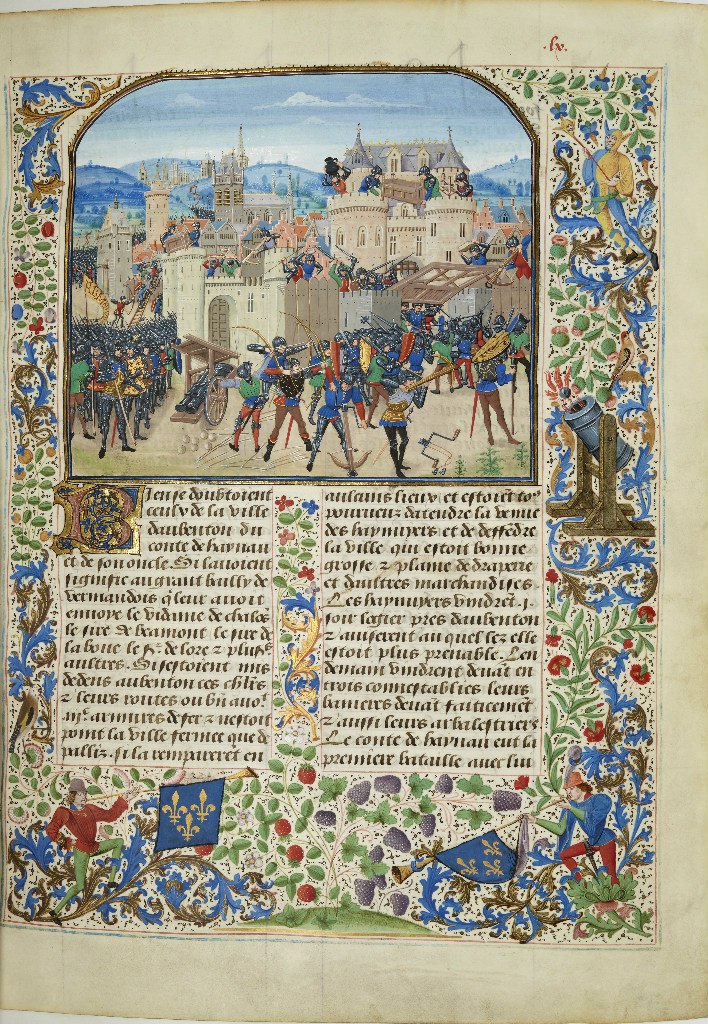 .lx.
Bien se doubtoient
ceulx de la ville
daubenton du
conte de haynau
et de son oncle. Si lauoient
signifie au grant bailly de
vermandois q̄ leur auoit
enuoye le vidame de chalōs
le sire de beamont le sire de
la boue le sr. de lore z plusrs
aultres. Si sestoient mis
dedens aubenton ces chlrs
z leurs routes ou bn̄ auot.
armures de fer z nestoit
point la ville fermee que de
palliz. si la remparerēt en
aulcuns lieux et estoiēt toꝰ
pourueuz datendre la venue
des haynuyers et de deffēdre
la ville qui estoit bonne
grosse z plaine de draperie
et daultres marchandises.
Les haynuyers vindrēt .i.
soir logier pres daubenton
z auiserent au quel lez elle
estoit plus prenable. Len
demain vindrent deuāt en
trois connestablies leurs
banieres deuāt faiticemēt
z aussi leurs arbalestriers
Le conte de haynau eut la
premiere bataille auec lui